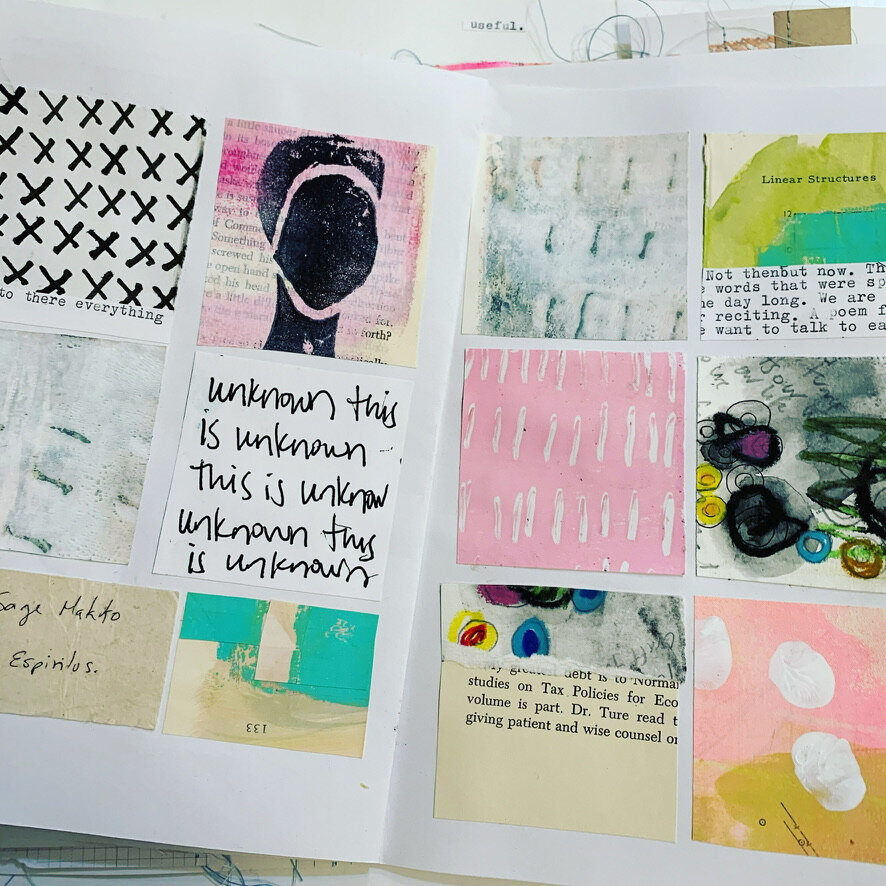 useful.
to there everything
a little saucer
Something
screwed his
open hand s
his head
a little
forth?
unknown this
is unknown
this is unknow
unknown this
is unknown
Sage Makito
Espiritus.
133
Linear Structures
12
Not thenbut now. Th
words that were sp
day long. We are
reciting. A poem f
want to talk to ea
My greatest debt is to Norman
studies on Tax Policies for Eco
volume is part. Dr. Ture read t
giving patient and wise counsel on